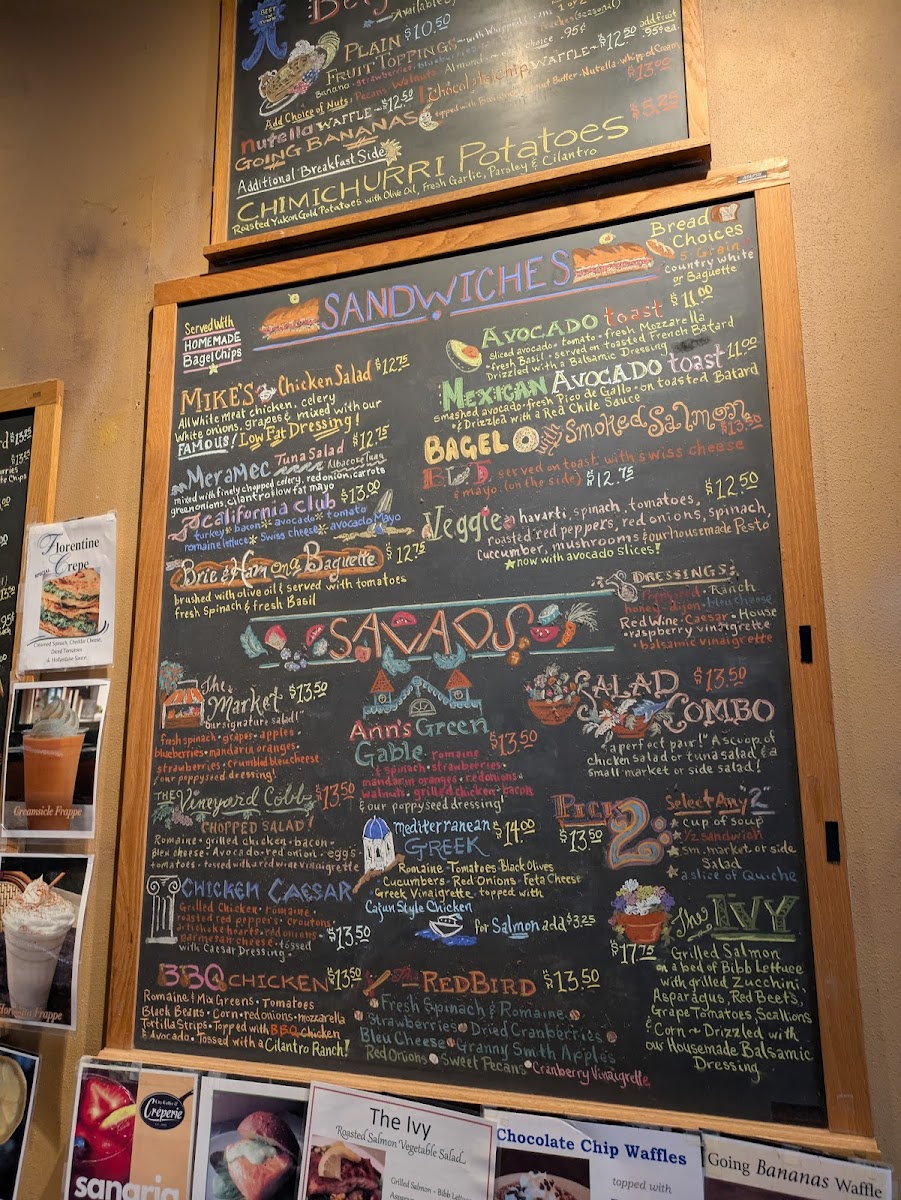 BEST
Available by
PLAIN $10.50
FRUIT TOPPINGS ~ with Whipped Cream 1 or 2
Banana • Strawberries • (seasonal)
add fruit .95¢ ea.
Add Choice of Nuts: Pecans • Walnuts • Almond ~ each choice .95¢
nutella WAFFLE ~ $12.50 | Chocolate Chip WAFFLE ~ $12.50
GOING BANANAS topped with Peanut Butter • Nutella • Whipped Cream $13.00
Additional Breakfast Side
CHIMICHURRI Potatoes $5.25
Roasted Yukon Gold Potatoes with Olive Oil, Fresh Garlic, Parsley & Cilantro
SANDWICHES
Served With
HOMEMADE
Bagel Chips
Bread Choices
5 Grain
country white
or Baguette
MIKE'S Chicken Salad $12.75
All white meat chicken, celery
White onions, grapes & mixed with our
FAMOUS! Low Fat Dressing!
MERAMEC Tuna Salad $12.75
Albacore Tuna
mixed with finely chopped celery, red onion, carrots
green onions, cilantro & low fat mayo
California club $13.00
turkey • bacon • avocado • tomato
romaine lettuce • Swiss cheese • avocado Mayo
Brie & Ham on a Baguette $12.75
brushed with olive oil & served with tomatoes
fresh Spinach & fresh Basil
AVOCADO toast $11.00
Sliced avocado • tomato • fresh Mozzarella
• fresh Basil • served on toasted French Batard
Drizzled with a Balsamic Dressing
MEXICAN AVOCADO toast 11.00
smashed avocado • fresh Pico de Gallo • on toasted Batard
& Drizzled with a Red Chile Sauce
BAGEL & Smoked Salmon $13.50
BLT served on toast with swiss cheese
& mayo (on the side) $12.75
Veggie havarti, spinach, tomatoes, $12.50
roasted red peppers, red onions, spinach,
cucumber, mushrooms & our housemade Pesto
★ now with avocado slices!
SALADS
DRESSINGS:
Poppyseed • Ranch
honey-dijon • bleu cheese
Red Wine • Caesar • House
• raspberry vinaigrette
• balsamic vinaigrette
The Market $13.50
"our signature salad!"
fresh spinach • grapes • apples •
blueberries • mandarin oranges •
strawberries • crumbled bleu cheese
& our poppyseed dressing!
Ann's Green
Gable $13.50
romaine
& spinach • strawberries •
mandarin oranges • red onions •
walnuts • grilled chicken • bacon
& our poppyseed dressing!
SALAD COMBO $13.50
"a perfect pair!" A scoop of
chicken salad or tuna salad & a
small market or side salad!
THE Vineyard Cobb $13.50
CHOPPED SALAD!
Romaine • grilled chicken • bacon •
Bleu cheese • Avocado • red onion • eggs •
tomatoes • tossed with a red wine vinaigrette
Mediterranean
GREEK $14.00
Romaine • Tomatoes • Black Olives
• Cucumbers • Red Onions • Feta Cheese
Greek Vinaigrette topped with
Cajun Style Chicken
for Salmon add $3.25
PICK 2 $13.50
Select Any "2"
★ cup of soup
★ 1/2 sandwich
★ sm. market or side
Salad
★ a slice of Quiche
CHICKEN CAESAR $13.50
Grilled Chicken • romaine •
roasted red peppers • croutons
artichoke hearts • red onions •
Parmesan cheese • tossed
with Caesar Dressing
The IVY $17.75
Grilled Salmon
on a bed of Bibb Lettuce
with grilled Zucchini,
Asparagus, Red Beets,
Grape Tomatoes, Scallions
& Corn ~ Drizzled with
our Housemade Balsamic
Dressing
BBQ CHICKEN $13.50
Romaine & Mix Greens • Tomatoes
Black Beans • Corn • red onions • mozzarella
Tortilla Strips • Topped with BBQ Chicken
& Avocado • Tossed with a Cilantro Ranch!
The REDBIRD $13.50
Fresh Spinach & Romaine
Strawberries • Dried Cranberries
Bleu Cheese • Granny Smith Apples
Red Onions • Sweet Pecans • Cranberry Vinaigrette
Florentine
Crepe
SPECIAL
Creamed Spinach, Cheddar Cheese,
Diced Tomatoes
& Hollandaise Sauce
Creamsicle Frappe
Frappe
Crêperie
sangria
The Ivy
Roasted Salmon Vegetable Salad
Grilled Salmon - Bibb Lettuce
Chocolate Chip Waffles
topped with
Going Bananas Waffle